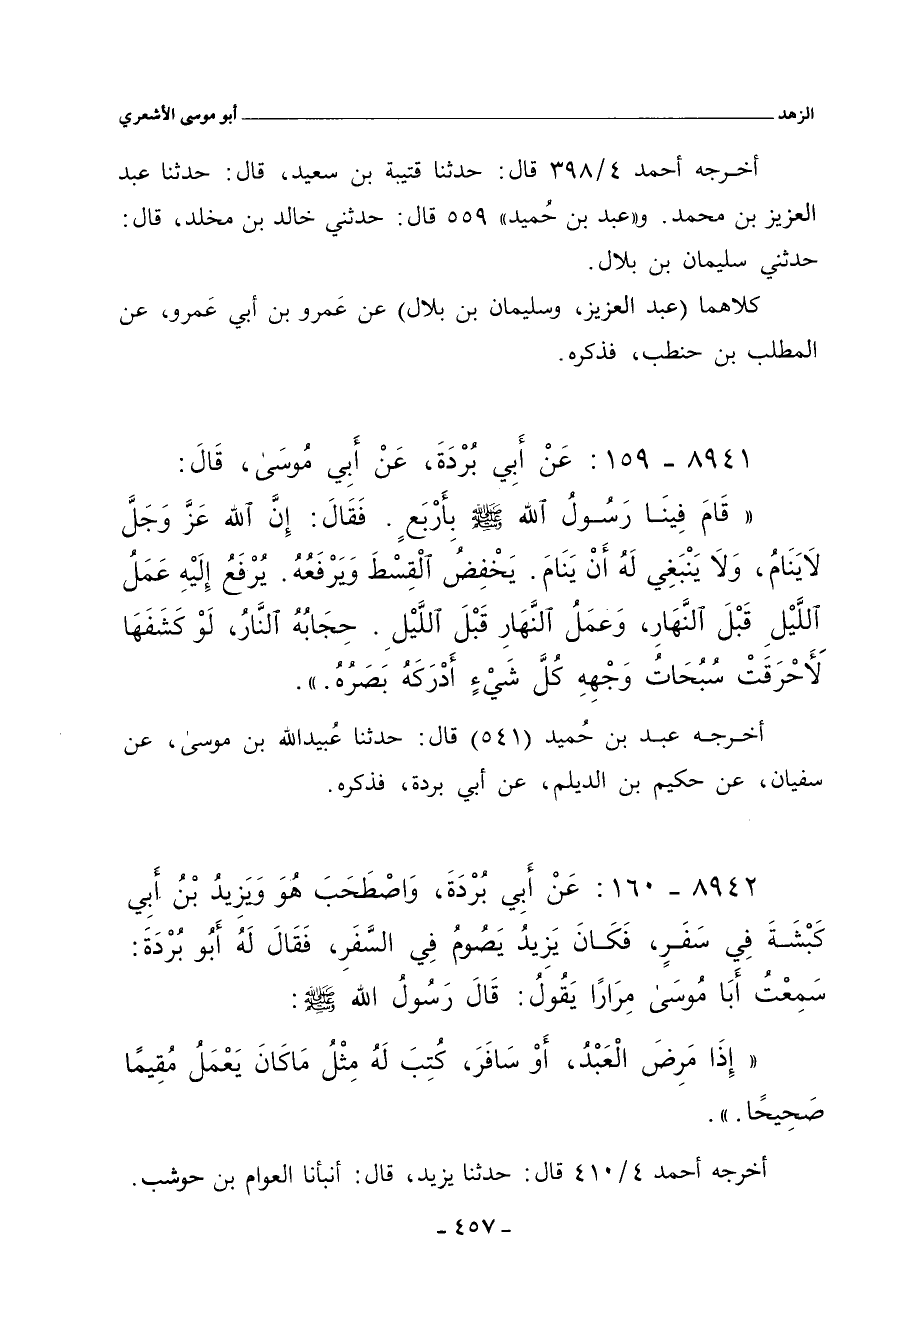 الزهد ــــــــــــــــــــــــــــــــــــــــ أبو موسى الأشعري
أخرجه أحمد ٣٩٨/٤ قال: حدثنا قتيبة بن سعيد، قال: حدثنا عبد
العزيز بن محمد. و«عبد بن حُميد» ٥٥٩ قال: حدثني خالد بن مخلد، قال:
حدثني سليمان بن بلال.
كلاهما (عبد العزيز، وسليمان بن بلال) عن عَمرو بن أبي عَمرو، عن
المطلب بن حنطب، فذكره.
٨٩٤١ - ١٥٩: عَنْ أَبِي بُرْدَةَ، عَنْ أَبِي مُوسَىٰ، قَالَ:
« قَامَ فِينَا رَسُولُ ٱللهِ ﷺ بِأَرْبَعٍ. فَقَالَ: إِنَّ ٱللهَ عَزَّ وَجَلَّ
لاَيَنَامُ، وَلاَ يَنْبَغِي لَهُ أَنْ يَنَامَ. يَخْفِضُ ٱلْقِسْطَ وَيَرْفَعُهُ. يُرْفَعُ إِلَيْهِ عَمَلُ
ٱللَّيْلِ قَبْلَ ٱلنَّهَارِ، وَعَمَلُ ٱلنَّهَارِ قَبْلَ ٱللَّيْلِ. حِجَابُهُ ٱلنَّارُ، لَوْ كَشَفَهَا
لَأَحْرَقَتْ سُبُحَاتُ وَجْهِهِ كُلَّ شَيْءٍ أَدْرَكَهُ بَصَرُهُ.».
أخرجه عبد بن حُميد (٥٤١) قال: حدثنا عُبيدالله بن موسىٰ، عن
سفيان، عن حكيم بن الديلم، عن أبي بردة، فذكره.
٨٩٤٢ - ١٦٠: عَنْ أَبِي بُرْدَةَ، وَاصْطَحَبَ هُوَ وَيَزِيدُ بْنُ أَبِي
كَبْشَةَ فِي سَفَرٍ، فَكَانَ يَزِيدُ يَصُومُ فِي السَّفَرِ، فَقَالَ لَهُ أَبُو بُرْدَةَ:
سَمِعْتُ أَبَا مُوسَىٰ مِرَارًا يَقُولُ: قَالَ رَسُولُ اللهِ ﷺ:
« إِذَا مَرِضَ الْعَبْدُ، أَوْ سَافَرَ، كُتِبَ لَهُ مِثْلُ مَاكَانَ يَعْمَلُ مُقِيمًا
صَحِيحًا.».
أخرجه أحمد ٤١٠/٤ قال: حدثنا يزيد، قال: أنبأنا العوام بن حوشب.
- ٤٥٧ -